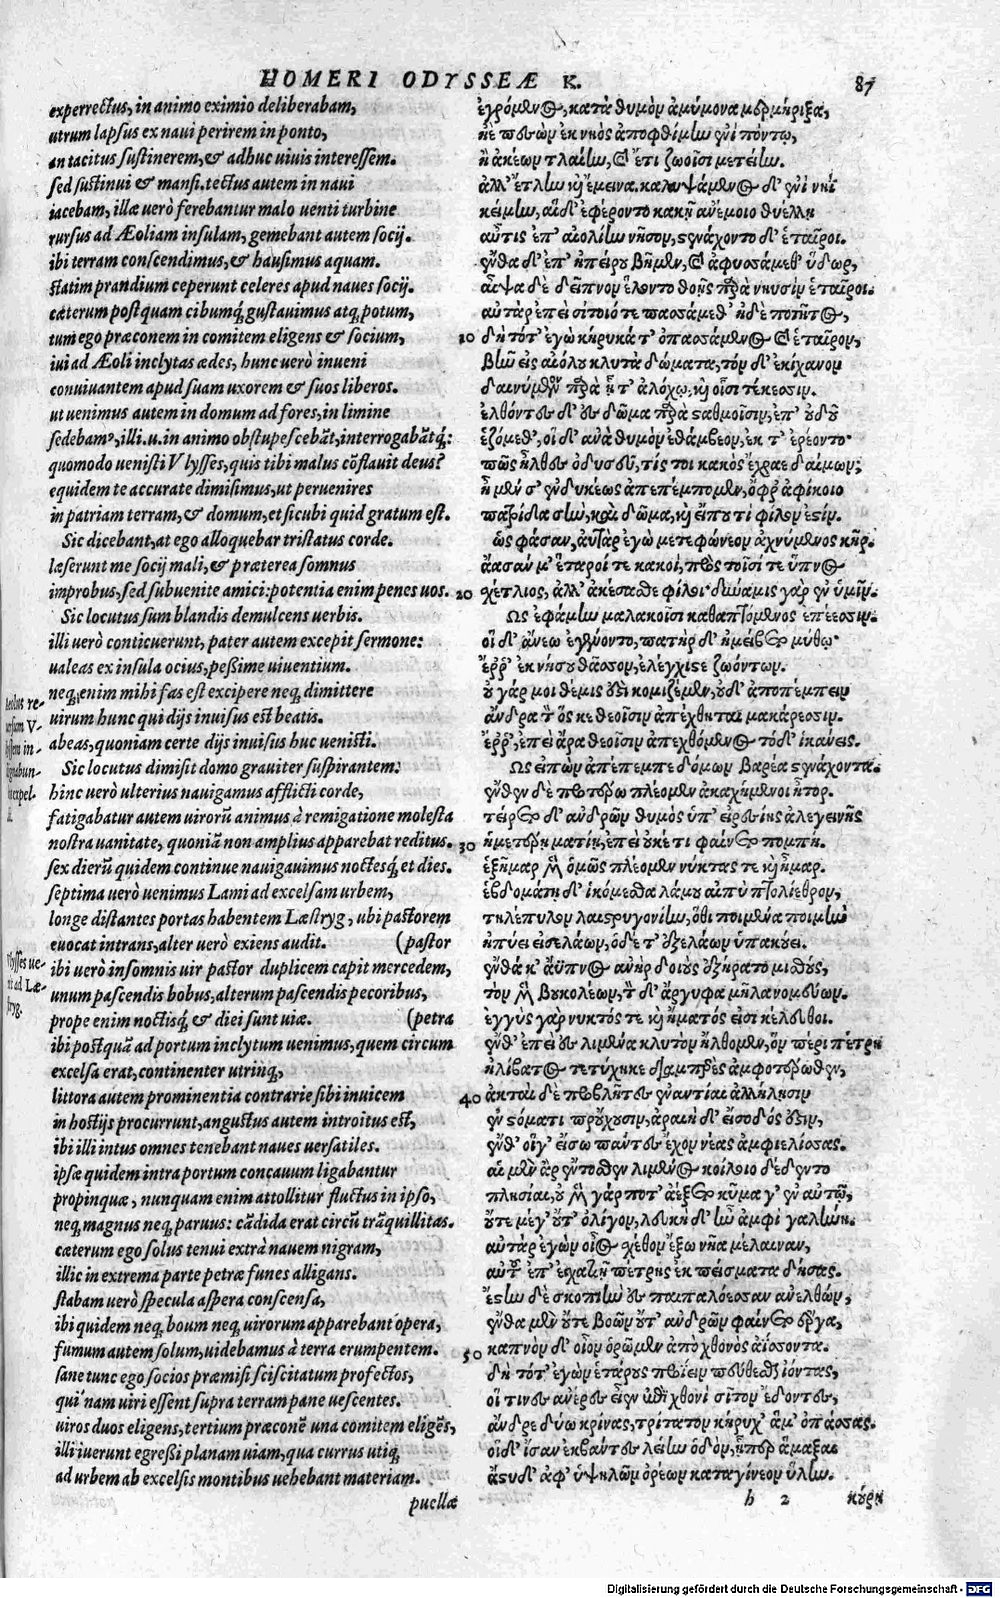 HOMERI ODYSSEÆ K. 87
experrectus, in animo eximio deliberabam,
utrum lapsus ex naui perirem in ponto,
an tacitus sustinerem, & adhuc uiuis interessem.
sed sustinui & mansi. tectus autem in naui
iacebam, illæ uerò ferebantur malo uenti turbine
rursus ad Æoliam insulam, gemebant autem socij.
ibi terram conscendimus, & hausimus aquam.
statim prandium ceperunt celeres apud naues socij.
cæterum postquam cibumq; gustauimus atq; potum,
tum ego præconem in comitem eligens & socium,
iui ad Æoli inclytas ædes, hunc uerò inueni
conuiuantem apud suam uxorem & suos liberos.
ut uenimus autem in domum ad fores, in limine
sedebam⁹, illi .u. in animo obstupescebãt, interrogabãtq́;:
quomodo uenisti Vlysses, quis tibi malus cõflauit deus?
equidem te accurate dimisimus, ut peruenires
in patriam terram, & domum, et sicubi quid gratum est.
Sic dicebant, at ego alloquebar tristatus corde.
læserunt me socij mali, & præterea somnus
improbus, sed subuenite amici: potentia enim penes uos.
Sic locutus sum blandis demulcens uerbis.
illi uerò conticuerunt, pater autem excepit sermone:
ualeas ex insula ocius, peßime uiuentium.
neq; enim mihi fas est excipere neq; dimittere
uirum hunc qui dijs inuisus est beatis.
abeas, quoniam certe dijs inuisus huc uenisti.
Sic locutus dimisit domo grauiter suspirantem:
hinc uerò ulterius nauigamus afflicti corde,
fatigabatur autem uirorũ animus à remigatione molesta
nostra uanitate, quoniã non amplius apparebat reditus.
sex dierũ quidem continue nauigauimus noctesq́; et dies.
septima uerò uenimus Lami ad excelsam urbem,
longe distantes portas habentem Læstryg, ubi pastorem
euocat intrans, alter uerò exiens audit. (pastor
ibi uerò insomnis uir pastor duplicem capit mercedem,
unum pascendis bobus, alterum pascendis pecoribus,
prope enim noctisq́; & diei sunt uiæ. (petra
ibi postquã ad portum inclytum uenimus, quem circum
excelsa erat, continenter utrinq;,
littora autem prominentia contrarie sibi inuicem
in hostijs procurrunt, angustus autem introitus est,
ibi illi intus omnes tenebant naues uersatiles.
ipsæ quidem intra portum concauum ligabantur
propinquæ, nunquam enim attollitur fluctus in ipso,
neq; magnus neq; paruus: cãdida erat circũ trãquillitas.
cæterum ego solus tenui extrà nauem nigram,
illic in extrema parte petræ funes alligans.
stabam uerò specula aspera conscensa,
ibi quidem neq; boum neq; uirorum apparebant opera,
fumum autem solum, uidebamus à terra erumpentem.
sane tunc ego socios præmisi sciscitatum profectos,
qui nam uiri essent supra terram pane uescentes.
uiros duos eligens, tertium præconẽ una comitem eligẽs,
illi iuerunt egreßi planam uiam, qua currus utiq;
ad urbem ab excelsis montibus uehebant materiam.
puellæ
Aeolus re-
uersum V-
lyssem in-
dignabun-
expel-
Vlysses ue-
nit ad Læ-
stryg.
ἐγρόμενος, κατὰ θυμὸν ἀμύμονα μερμήριξα,
ἠὲ πεσὼν ἐκ νηὸς ἀποφθίμην ἐνὶ πόντῳ,
ἢ ἀκέων τλαίην, καὶ ἔτι ζωοῖσι μετείην.
ἀλλ' ἔτλην καὶ ἔμεινα. καλυψάμενος δ' ἐνὶ νηῒ
κείμην, αἱ δ' ἐφέροντο κακῇ ἀνέμοιο θυέλλῃ
αὖτις ἐπ' αἰολίην νῆσον, στενάχοντο δ' ἑταῖροι.
ἔνθα δ' ἐπ' ἠπείρου βῆμεν, καὶ ἀφυσσάμεθ' ὕδωρ,
αἶψα δὲ δεῖπνον ἕλοντο θοῇς παρὰ νηυσὶν ἑταῖροι.
αὐτὰρ ἐπεὶ σίτοιό τε πασσάμεθ' ἠδὲ ποτῆτος,
10 δὴ τότ' ἐγὼ κήρυκά τ' ὀπασσάμενος καὶ ἑταῖρον,
βῆν εἰς αἰόλου κλυτὰ δώματα, τὸν δ' ἐκίχανον
δαινύμενον παρὰ ᾗ τ' ἀλόχῳ, καὶ οἷσι τέκεσσιν.
ἐλθόντες δ' ἐς δῶμα παρὰ σταθμοῖσιν, ἐπ' οὐδοῦ
ἑζόμεθ', οἱ δ' ἀνὰ θυμὸν ἐθάμβεον, ἐκ τ' ἐρέοντο·
πῶς ἦλθες ὀδυσεῦ, τίς τοι κακὸς ἔχραε δαίμων;
ἦ μέν σ' ἐνδυκέως ἀπεπέμπομεν, ὄφρ' ἀφίκοιο
πατρίδα σὴν, καὶ δῶμα, καὶ εἴ που τι φίλον ἐστίν.
ὡς φάσαν, αὐτὰρ ἐγὼ μετεφώνεον ἀχνύμενος κῆρ.
ἄασάν μ' ἕταροί τε κακοί, πρὸς τοῖσί τε ὕπνος
20 σχέτλιος, ἀλλ' ἀκέσασθε φίλοι· δύναμις γὰρ ἐν ὑμῖν.
Ως ἐφάμην μαλακοῖσι καθαπτόμενος ἐπέεσσιν.
οἱ δ' ἄνεω ἐγένοντο, πατὴρ δ' ἠμείβετο μύθῳ·
ἔρρ' ἐκ νήσου θᾶσσον, ἐλέγχιστε ζωόντων.
οὐ γάρ μοι θέμις ἐστὶ κομιζέμεν, οὐδ' ἀποπέμπειν
ἄνδρα τὸν ὅς κε θεοῖσιν ἀπέχθηται μακάρεσσιν.
ἔρρ', ἐπεὶ ἄρα θεοῖσιν ἀπεχθόμενος τόδ' ἱκάνεις.
Ως εἰπὼν ἀπέπεμπε δόμων βαρέα στενάχοντα.
ἔνθεν δὲ προτέρω πλέομεν ἀκαχήμενοι ἦτορ.
τείρετο δ' ἀνδρῶν θυμὸς ὑπ' εἰρεσίης ἀλεγεινῆς
30 ἡμετέρῃ ματίῃ, ἐπεὶ οὐκέτι φαίνετο πομπή.
ἑξῆμαρ μὲν ὁμῶς πλέομεν νύκτας τε καὶ ἦμαρ.
ἑβδομάτῃ δ' ἱκόμεσθα λάμου αἰπὺ πτολίεθρον,
τηλέπυλον λαιστρυγονίην, ὅθι ποιμένα ποιμὴν
ἠπύει εἰσελάων, ὁ δέ τ' ἐξελάων ὑπακούει.
ἔνθά κ' ἄϋπνος ἀνὴρ δοιοὺς ἐξήρατο μισθούς,
τὸν μὲν βουκολέων, τὸν δ' ἄργυφα μῆλα νομεύων.
ἐγγὺς γὰρ νυκτός τε καὶ ἤματός εἰσι κέλευθοι.
ἔνθ' ἐπεὶ ἐς λιμένα κλυτὸν ἤλθομεν, ὃν πέρι πέτρη
ἠλίβατος τετύχηκε διαμπερὲς ἀμφοτέρωθεν,
40 ἀκταὶ δὲ προβλῆτες ἐναντίαι ἀλλήλῃσιν
ἐν στόματι προὔχουσιν, ἀραιὴ δ' εἴσοδός ἐστιν,
ἔνθ' οἵγ' εἴσω πάντες ἔχον νέας ἀμφιελίσσας.
αἱ μὲν ἄρ' ἔντοσθεν λιμένος κοίλοιο δέδεντο
πλησίαι, οὐ μὲν γάρ ποτ' ἀέξετο κῦμα γ' ἐν αὐτῷ,
οὔτε μέγ' οὔτ' ὀλίγον, λευκὴ δ' ἦν ἀμφὶ γαλήνη.
αὐτὰρ ἐγὼν οἶος σχέθον ἔξω νῆα μέλαιναν,
αὐτοῦ ἐπ' ἐσχατιῇ πέτρης ἐκ πείσματα δήσας.
ἔστην δὲ σκοπιὴν ἐς παιπαλόεσσαν ἀνελθών,
ἔνθα μὲν οὔτε βοῶν οὔτ' ἀνδρῶν φαίνετο ἔργα,
50 καπνὸν δ' οἶον ὁρῶμεν ἀπὸ χθονὸς ἀΐσσοντα.
δὴ τότ' ἐγὼν ἑτάρους προΐειν πεύθεσθαι ἰόντας,
οἵ τινες ἀνέρες εἶεν ἐπὶ χθονὶ σῖτον ἔδοντες,
ἄνδρε δύω κρίνας, τρίτατον κήρυχ' ἅμ' ὀπάσσας.
οἱ δ' ἴσαν ἐκβάντες λείην ὁδὸν, ᾗπερ ἅμαξαι
ἄστυδ' ἀφ' ὑψηλῶν ὀρέων καταγίνεον ὕλην.
h 2 κούρῃ
Digitalisierung gefördert durch die Deutsche Forschungsgemeinschaft - DFG